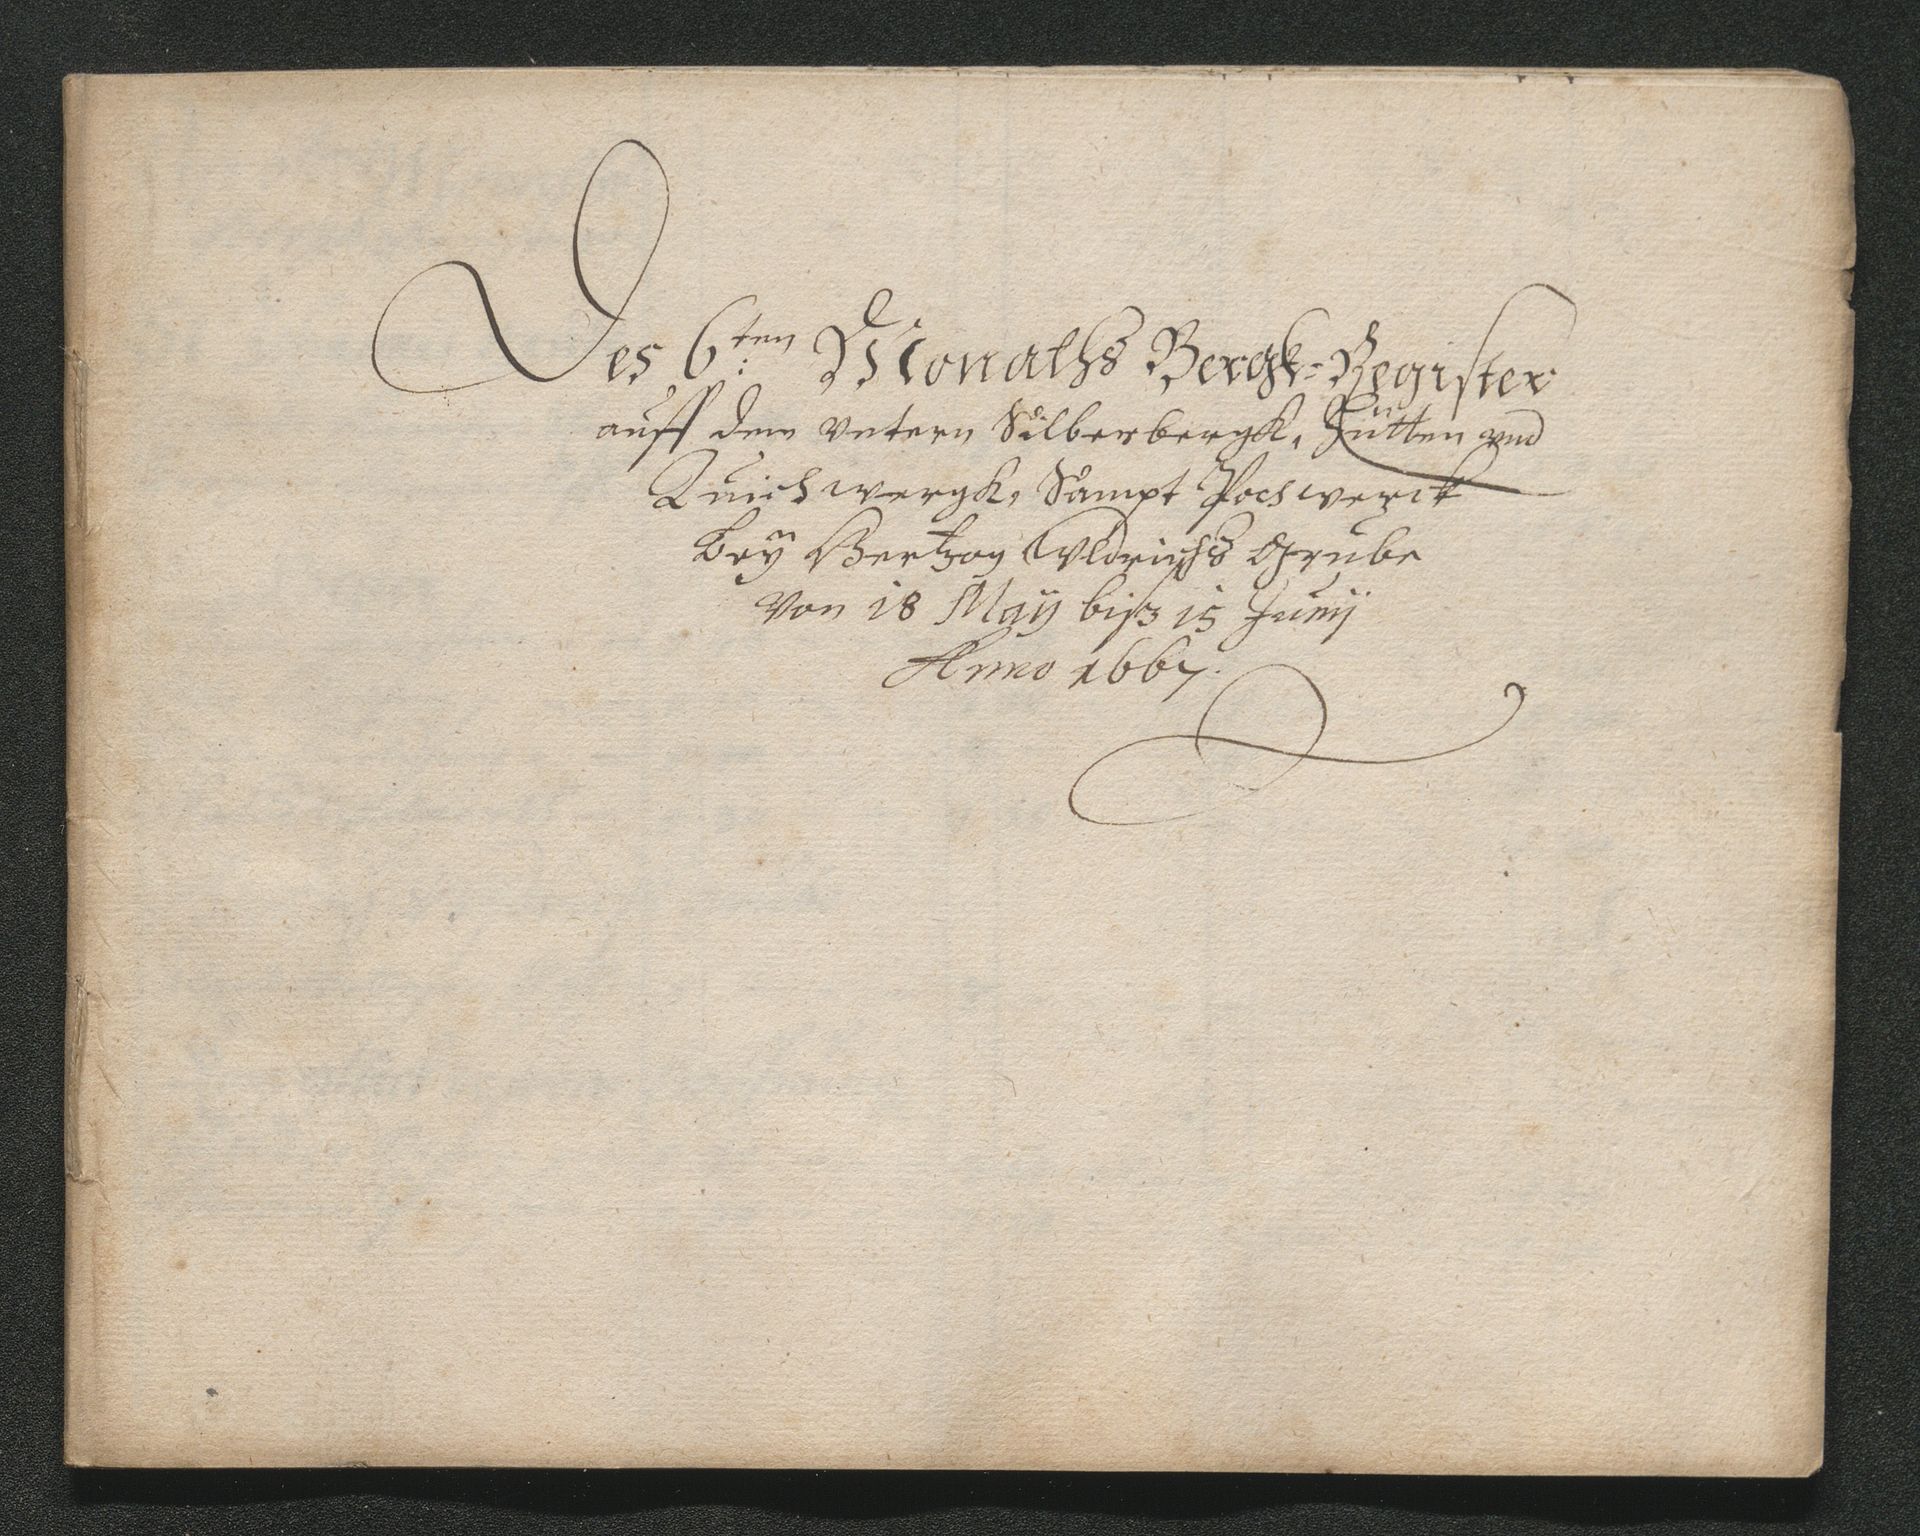 Des 6ten: Monaths Bergk-Register
auff dem vntern Silberbergk, Hütten vnd
Quickwergk, Sampt Pochwerck
bey Hertzog Vldrichs Grube
von 18 Maÿ biß 15 Junij
Anno 1667.